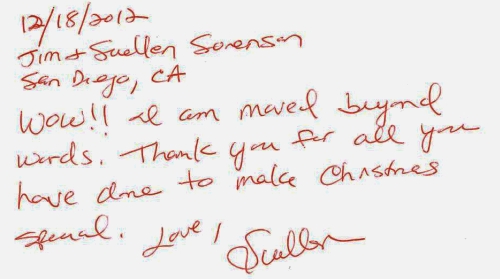 12/18/2012
Jim + Suellen Sorenson
San Diego, CA
WOW!! I am moved beyond
words. Thank you for all you
have done to make Christmas
special. Love,
Suellen